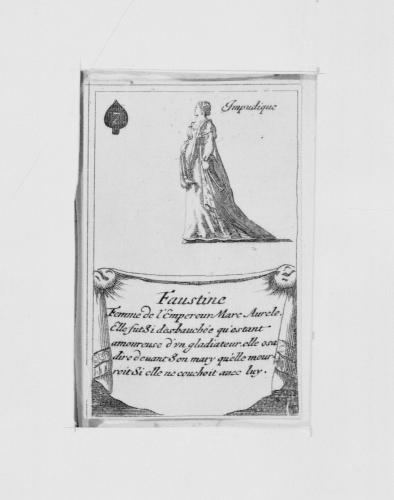 2
Impudique
Faustine
Femme de l'Empereur Marc Aurele.
Elle fut si desbauchée qu'estant
amoureuse d'vn gladiateur elle osa
dire deuant son mary qu'elle mour-
roit si elle ne couchoit auec luy.